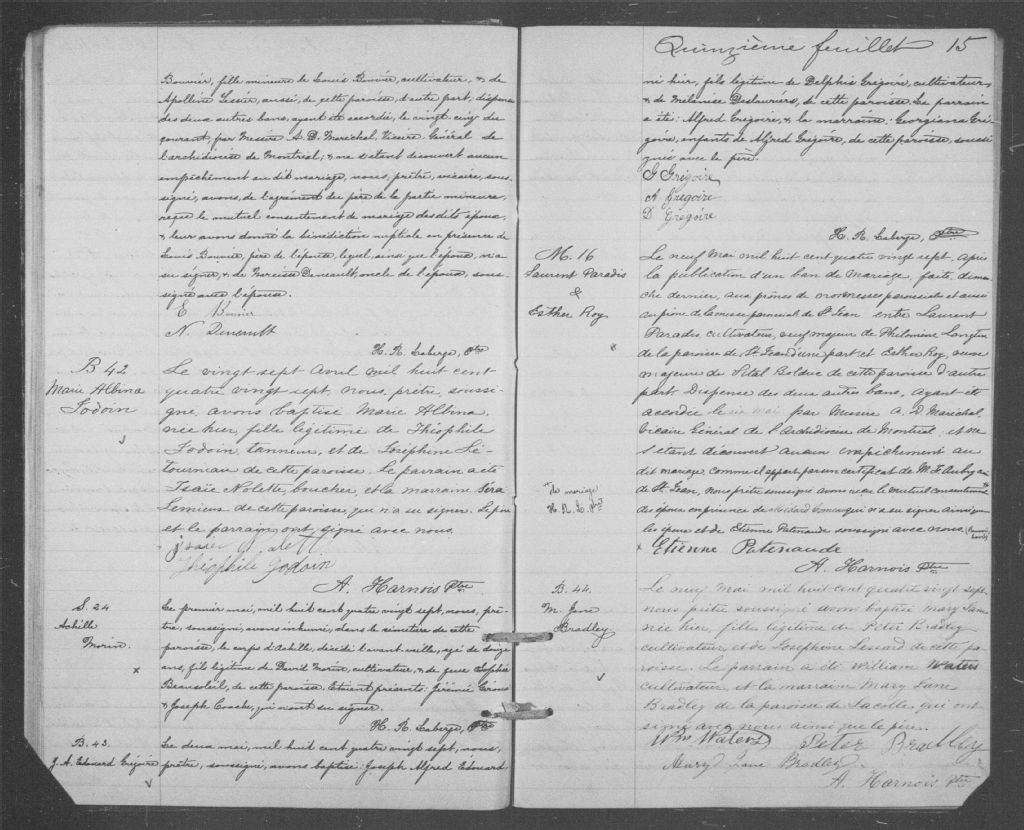 Bounier, fille mineure de Louis Bounier, cultivateur, & de
Apolline Lesser, aussi, de cette paroisse, d'autre part; dispense
des deux autres bans, ayant été accordée, le vingt cinq du
courant, par Messire A. D. Maréchal, Vicaire Général de
l'archidiocèse de Montréal; & ne s'étant découvert aucun
empêchement au dit mariage, nous, prêtre, vicaire, sous-
signé, avons, de l'agrément du père de la partie mineure,
reçu le mutuel consentement de mariage des dits époux,
& leur avons donné la bénédiction nuptiale en présence de
Louis Bounier, père de l'épouse, lequel, ainsi que l'époux, n'a
su signer, & de Narcisse Deneault, oncle de l'épouse, sous-
signé avec l'épouse.
E Bounier
N. Deneault
H. R. Laberge, Ptre
B 42
Marie Albina
Jodoin
Le vingt sept Avril mil huit cent
quatre vingt sept, nous, prêtre, soussi-
gné, avons baptisé Marie Albina
née hier, fille légitime de Théophile
Jodoin, tanneur, et de Josephine Lé-
tourneau de cette paroisse. Le parrain a été
Isaïe Nolette, boucher, et la marraine
Lemieux de cette paroisse, qui n'a su signer. Le père
et le parrain ont signé avec nous.
Théophile Jodoin
A. Harnois Ptre
S. 24
Achille
Morin.
Le premier mai, mil huit cent quatre vingt sept, nous, prê-
tre, soussigné, avons inhumé, dans le cimetière de cette
paroisse, le corps d'Achille, décédé l'avant veille, agé de
ans, fils légitime de David Morin, cultivateur, & de feue Sophie
Beausoleil, de cette paroisse. Étaient présents: Jérémie
& Joseph qui n'ont su signer.
H. R. Laberge, Ptre
B. 43.
J. A. Edouard Grégoire
Le deux mai, mil huit cent quatre vingt sept, nous,
prêtre, soussigné, avons baptisé: Joseph Alfred Edouard
Quinzième feuillet 15
né hier, fils légitime de Delphis Grégoire, cultivateur,
& de Mélanise Deslauriers, de cette paroisse. Le parrain
a été: Alfred Grégoire, & la marraine: Georgiana Gré-
goire, enfants de Alfred Grégoire, de cette paroisse, soussi-
gnés avec le père.
G Grégoire
A Grégoire
D Grégoire
H. R. Laberge, Ptre
M. 16
Laurent Paradis
&
Esther Roy
Le neuf Mai mil huit cent quatre vingt sept, après
la publication d'un ban de mariage, faite, diman-
che dernier, aux prônes de nos messes paroissiales et aussi
au prône de la messe paroissiale de St Jean entre Laurent
Paradis, cultivateur, veuf majeur de Philomène Longtin
de la paroisse de St Jean d'une part et Esther Roy, veuve
majeure de Vital Bolduc de cette paroisse d'autre
part. Dispense des deux autres bans, ayant été
accordée le six mai par Messire A. D. Maréchal,
Vicaire Général de l'Archidiocèse de Montréal; et ne
s'étant découvert aucun empêchement au
dit mariage, comme il appert par un certificat de M. F. Aubry curé
de St Jean, nous prêtre soussigné avons reçu le mutuel consentement
* de mariage
H. R. L. Ptre
des époux en présence de Médard qui n'a su signer ainsi que
les époux et de Etienne Patenaude soussigné avec nous.
x Etienne Patenaude
A. Harnois Ptre
B. 44.
M. Jane
Bradley
Le neuf Mai mil huit cent quatre vingt sept,
nous prêtre soussigné avons baptisé Mary Jane
née hier, fille légitime de Peter Bradley
cultivateur, et de Josephine Lessard de cette pa-
roisse. Le parrain a été William Waters
cultivateur, et la marraine Mary Jane
Bradley de la paroisse de Lacolle qui ont
signé avec nous ainsi que le père.
Wm Waters Peter Bradley
Mary Jane Bradley.
A. Harnois Ptre